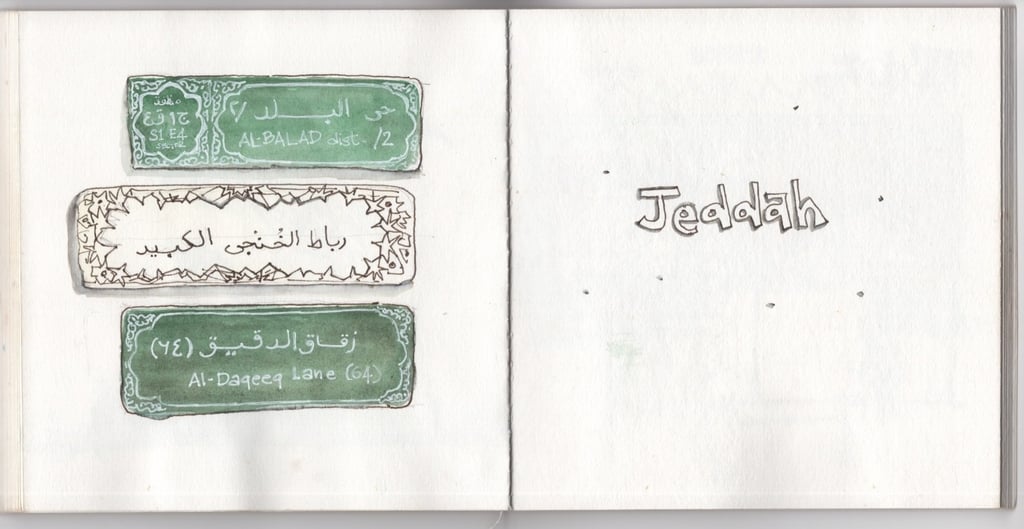 منطقة
ج١ ق٤
S1 E4
حى البلد /٢
AL-BALAD dist. /2
رباط الخُنجى الكبير
زقاق الدقيق (٦٤)
Al-Daqeeq Lane (64)
Jeddah